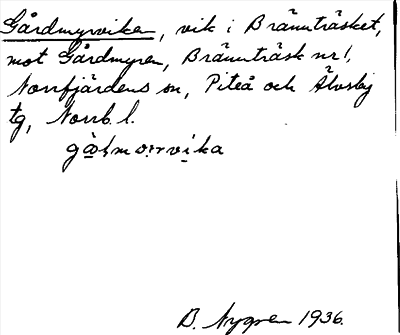 Gårdmyrvika, vik i Brännträsket,
mot Gårdmyren, Brännträsk nr 1,
Norrfjärdens sn, Piteå och Älvsby
tg, Norrb. l.
gò̱ḷmo̱rvi̱ka
B. Nygren 1936.